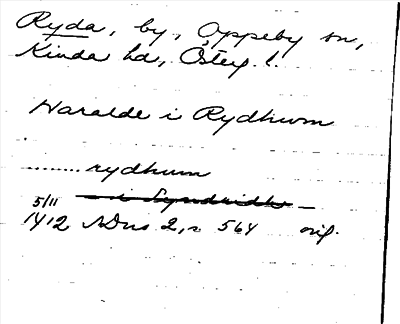 Ryda, by, Oppeby sn,
Kinda hd, Östg. l.
Haralde i Rydhwm
........ rydhum
5/11 — i Syndridh —
1412 SDns 2, s 564 orig.